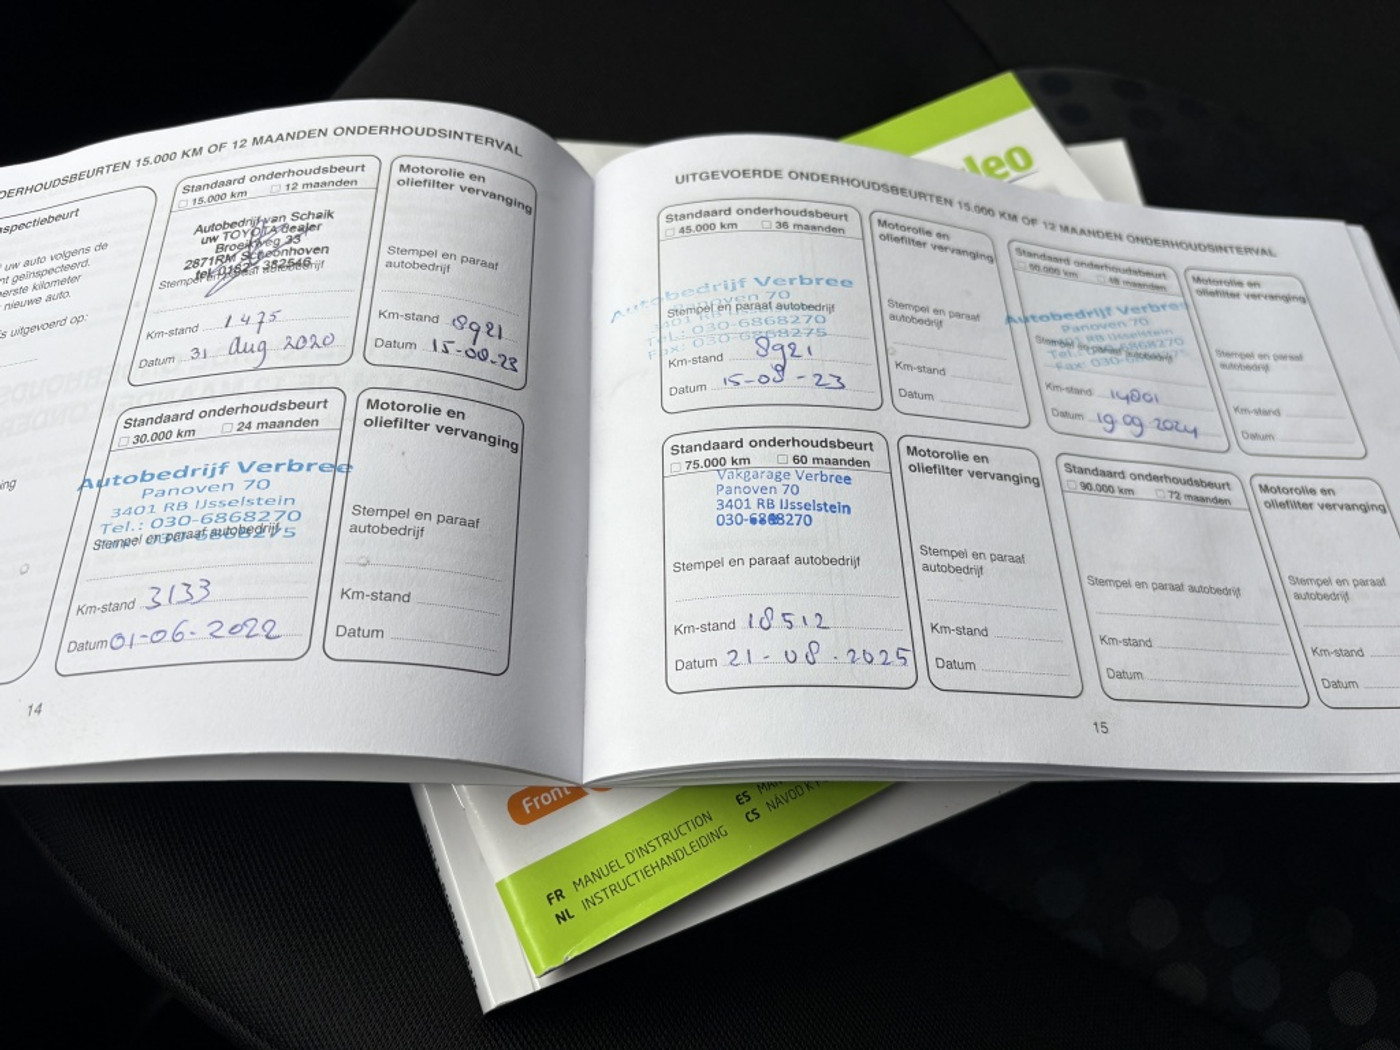 DERHOUDSBEURTEN 15.000 KM OF 12 MAANDEN ONDERHOUDSINTERVAL
spectiebeurt
uw auto volgens de
nt geïnspecteerd.
erste kilometer
nieuwe auto.
s uitgevoerd op:
ing
Standaard onderhoudsbeurt
15.000 km 12 maanden
Autobedrijf van Schaik
uw TOYOTA dealer
Broekweg 33
2871RM Schoonhoven
tel. 0182-382546
Stempel en paraaf autobedrijf
Km-stand 1475
Datum 31 aug 2020
Motorolie en
oliefilter vervanging
Stempel en paraaf
autobedrijf
Km-stand 8921
Datum 15-08-23
Standaard onderhoudsbeurt
30.000 km 24 maanden
Autobedrijf Verbree
Panoven 70
3401 RB IJsselstein
Tel.: 030-6868270
Stempel en paraaf autobedrijf
Km-stand 3133
Datum 01-06-2022
Motorolie en
oliefilter vervanging
Stempel en paraaf
autobedrijf
Km-stand
Datum
14
UITGEVOERDE ONDERHOUDSBEURTEN 15.000 KM OF 12 MAANDEN ONDERHOUDSINTERVAL
Standaard onderhoudsbeurt
45.000 km 36 maanden
Autobedrijf Verbree
Panoven 70
Stempel en paraaf autobedrijf
Tel.: 030-6868270
Fax: 030-6868275
Km-stand 8921
Datum 15-08-23
Motorolie en
oliefilter vervanging
Stempel en paraaf
autobedrijf
Km-stand
Datum
Standaard onderhoudsbeurt
60.000 km 48 maanden
Autobedrijf Verbree
Panoven 70
Stempel en paraaf autobedrijf
Km-stand 14801
Datum 19.09.2024
Motorolie en
oliefilter vervanging
Stempel en paraaf
autobedrijf
Km-stand
Datum
Standaard onderhoudsbeurt
75.000 km 60 maanden
Vakgarage Verbree
Panoven 70
3401 RB IJsselstein
030-6868270
Stempel en paraaf autobedrijf
Km-stand 18512
Datum 21-08-2025
Motorolie en
oliefilter vervanging
Stempel en paraaf
autobedrijf
Km-stand
Datum
Standaard onderhoudsbeurt
90.000 km 72 maanden
Stempel en paraaf autobedrijf
Km-stand
Datum
Motorolie en
oliefilter vervanging
Stempel en paraaf
autobedrijf
Km-stand
Datum
15
leo
Front
FR MANUEL D'INSTRUCTION
NL INSTRUCTIEHANDLEIDING
ES
CS NÁVOD K